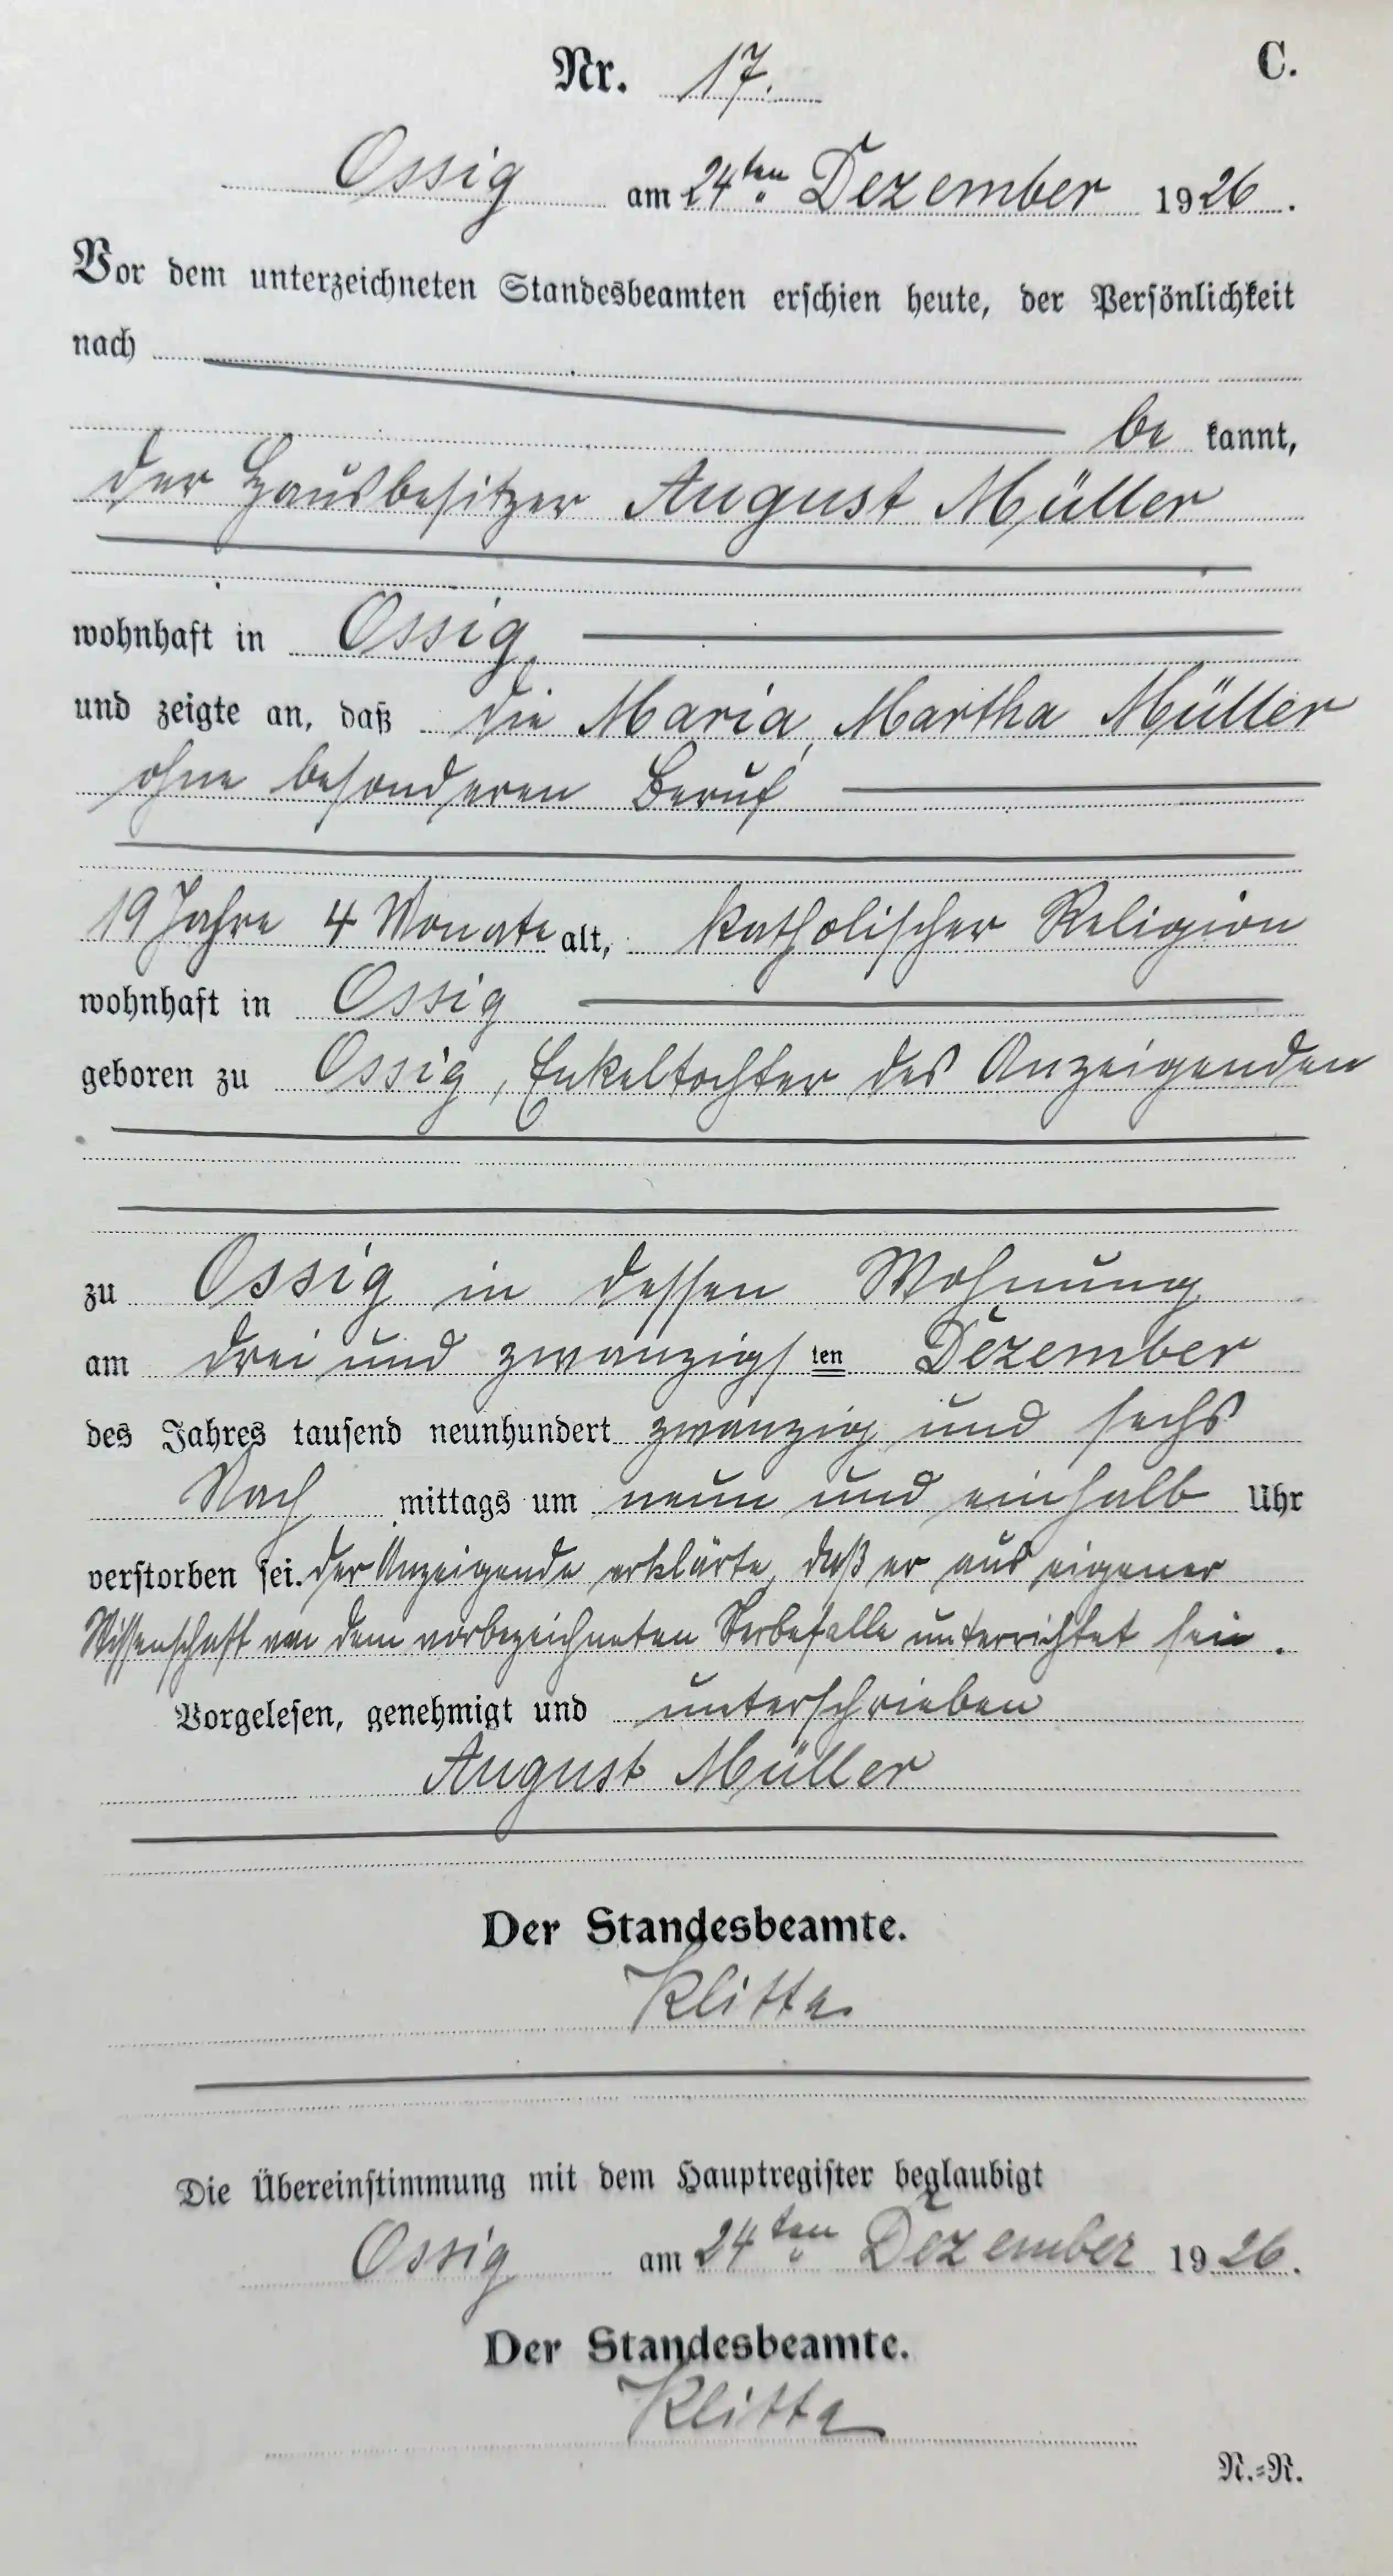 Nr. 17. C.
Ossig am 24ten Dezember 1926.
Vor dem unterzeichneten Standesbeamten erschien heute, der Persönlichkeit
nach
be kannt,
der Hausbesitzer August Müller
wohnhaft in Ossig,
und zeigte an, daß die Maria, Martha Müller
ohne besonderen Beruf
19 Jahre 4 Monate alt, katholischer Religion
wohnhaft in Ossig
geboren zu Ossig, Enkeltochter des Anzeigenden
zu Ossig in dessen Wohnung
am drei und zwanzigsten Dezember
des Jahres tausend neunhundert zwanzig und sechs
Nach mittags um neun und einhalb Uhr
verstorben sei. Der Anzeigende erklärte, daß er aus eigener
Wissenschaft von dem vorbezeichneten Sterbefalle unterrichtet sei.
Vorgelesen, genehmigt und unterschrieben
August Müller
Der Standesbeamte.
Klitta
Die Übereinstimmung mit dem Hauptregister beglaubigt
Ossig am 24ten Dezember 1926.
Der Standesbeamte.
Klitta
N.=R.